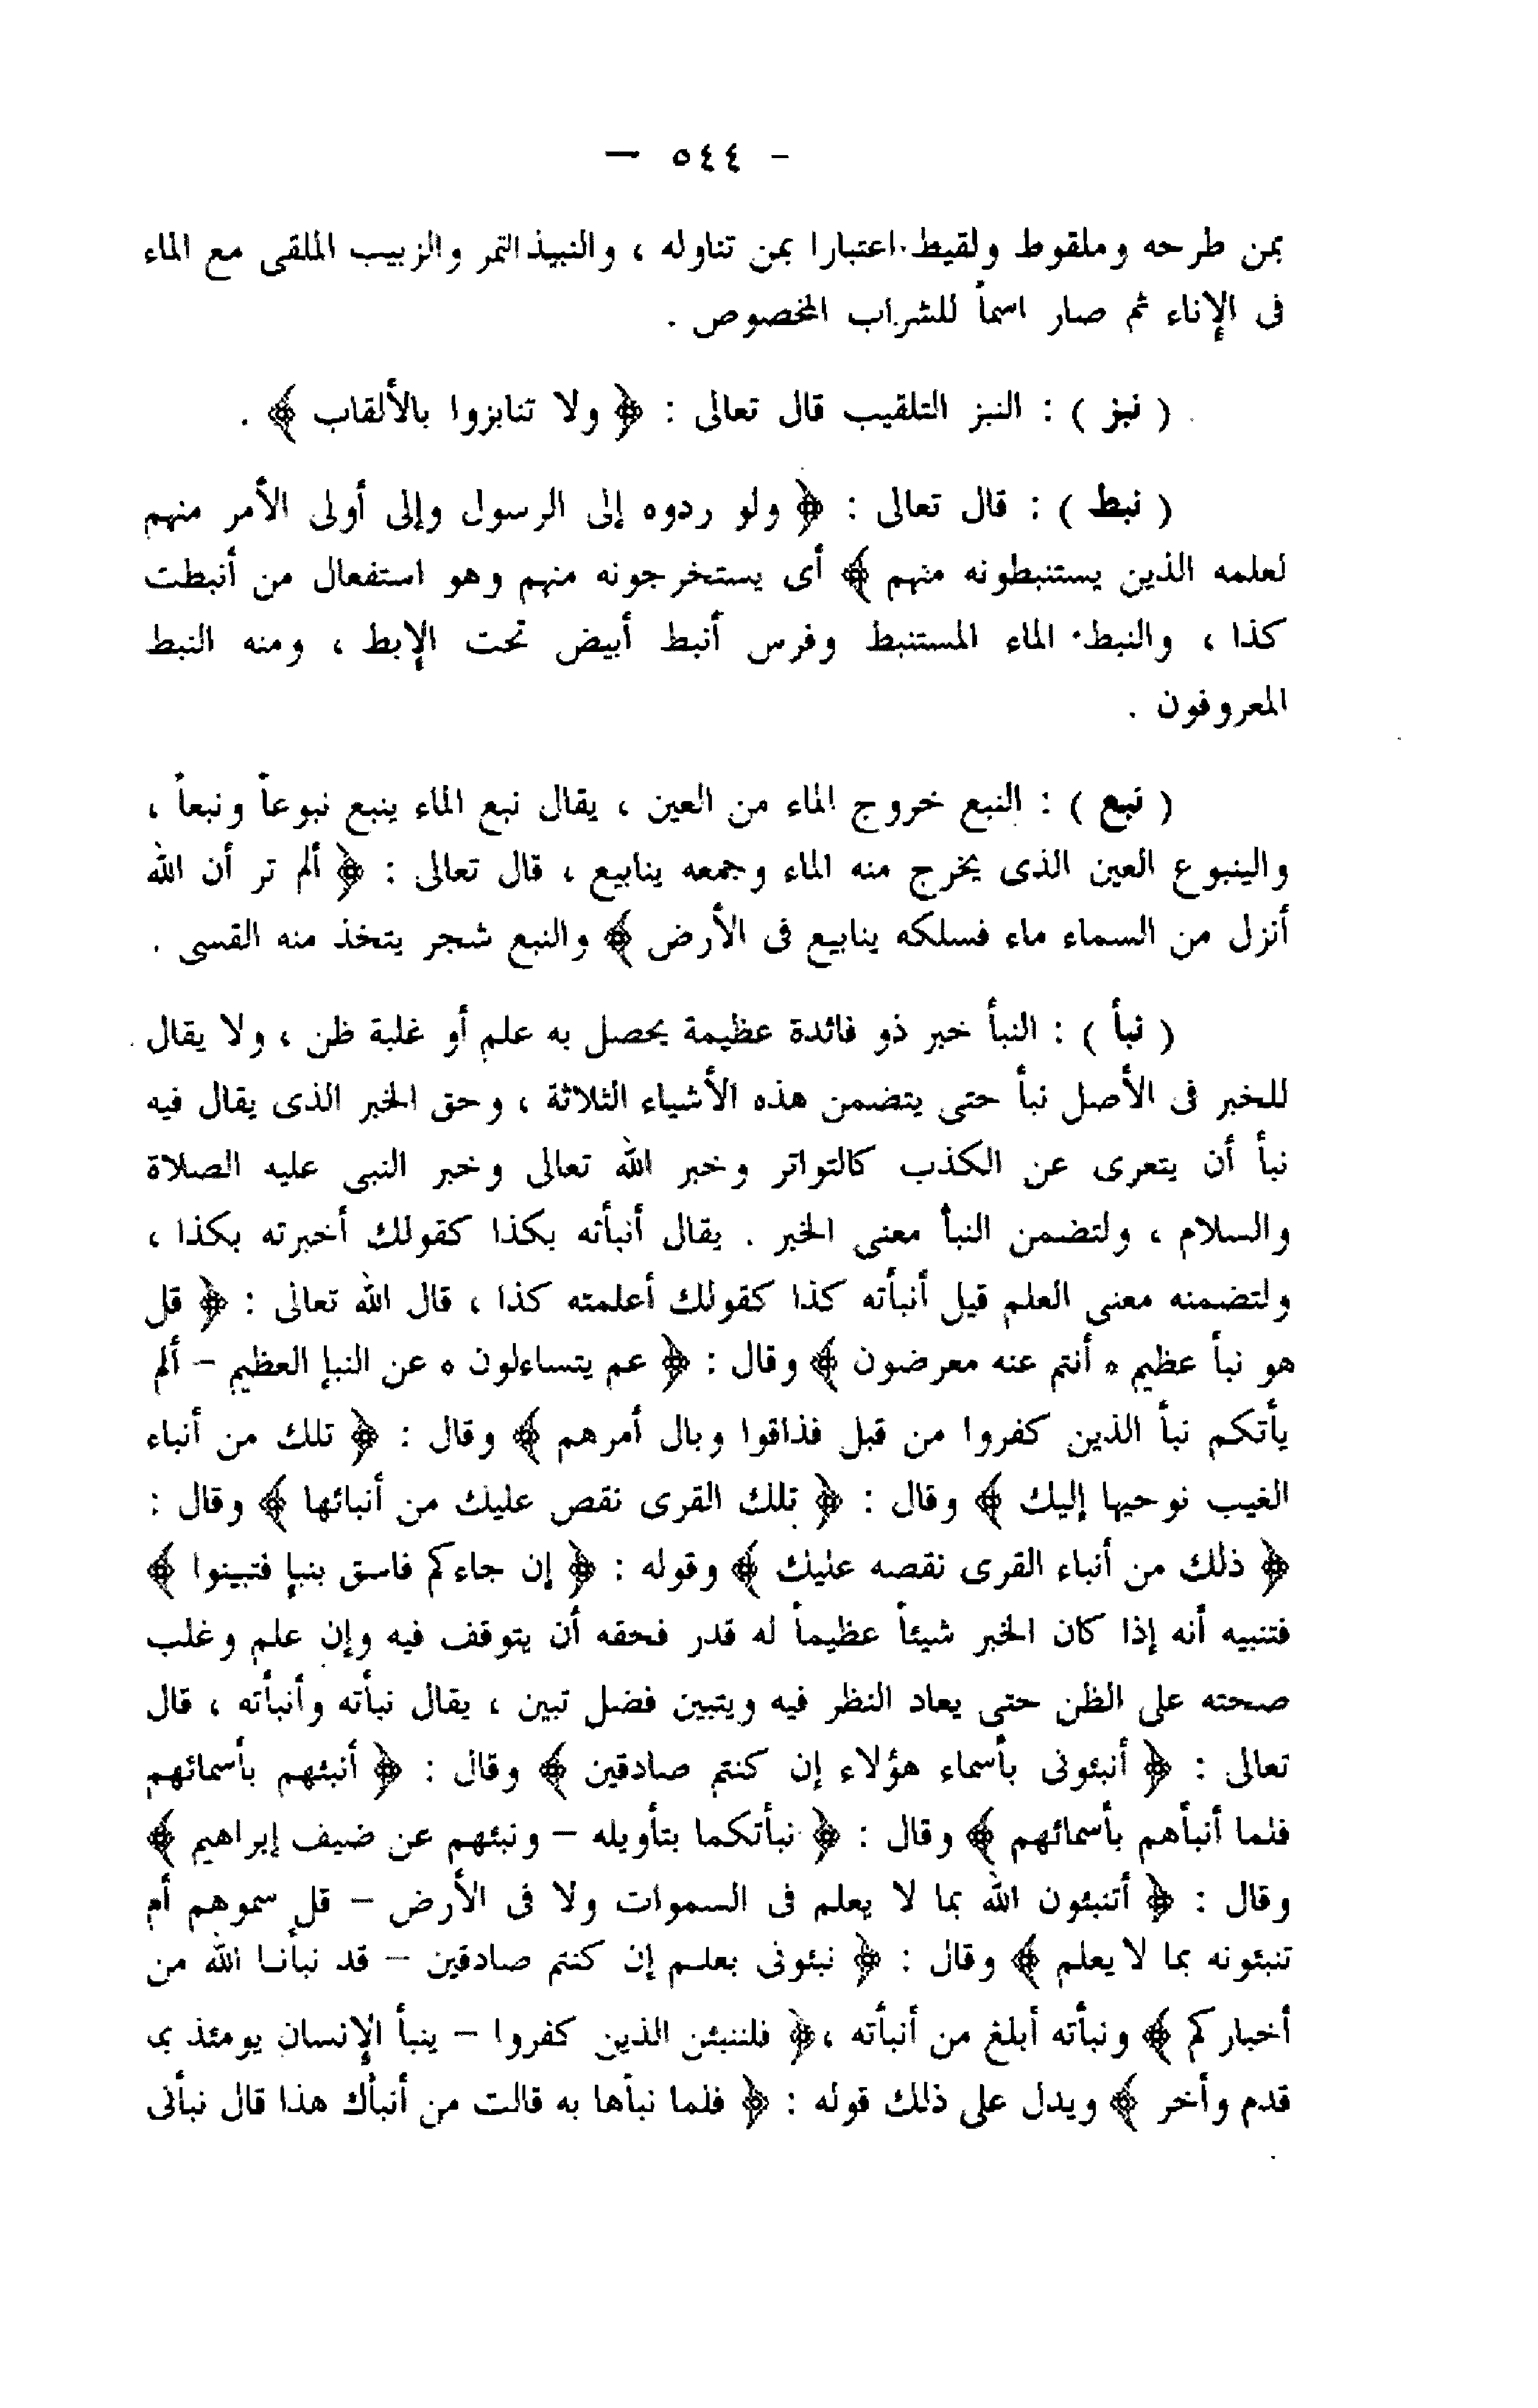 - ٥٤٤ -
بمن طرحه وملقوط ولقيط اعتبارا بمن تناوله ، والنبيذ التمر والزبيب الملقى مع الماء
فى الإناء ثم صار اسماً للشراب المخصوص .
( نبز ) : النبز التلقيب قال تعالى : ﴿ ولا تنابزوا بالألقاب ﴾ .
( نبط ) : قال تعالى : ﴿ ولو ردوه إلى الرسول وإلى أولى الأمر منهم
لعلمه الذين يستنبطونه منهم ﴾ أى يستخرجونه منهم وهو استفعال من أنبطت
كذا ، والنبط الماء المستنبط وفرس أنبط أبيض تحت الإبط ، ومنه النبط
المعروفون .
( نبع ) : النبع خروج الماء من العين ، يقال نبع الماء ينبع نبوعاً ونبعاً ،
والينبوع العين الذى يخرج منه الماء وجمعه ينابيع ، قال تعالى : ﴿ ألم تر أن الله
أنزل من السماء ماء فسلكه ينابيع فى الأرض ﴾ والنبع شجر يتخذ منه القسى .
( نبأ ) : النبأ خبر ذو فائدة عظيمة يحصل به علم أو غلبة ظن ، ولا يقال
للخبر فى الأصل نبأ حتى يتضمن هذه الأشياء الثلاثة ، وحق الخبر الذى يقال فيه
نبأ أن يتعرى عن الكذب كالتواتر وخبر الله تعالى وخبر النبى عليه الصلاة
والسلام ، ولتضمن النبأ معنى الخبر . يقال أنبأته بكذا كقولك أخبرته بكذا ،
ولتضمنه معنى العلم قيل أنبأته كذا كقولك أعلمته كذا ، قال الله تعالى : ﴿ قل
هو نبأ عظيم ه أنتم عنه معرضون ﴾ وقال : ﴿ عم يتساءلون ه عن النبإ العظيم - ألم
يأتكم نبأ الذين كفروا من قبل فذاقوا وبال أمرهم ﴾ وقال : ﴿ تلك من أنباء
الغيب نوحيها إليك ﴾ وقال : ﴿ تلك القرى نقص عليك من أنبائها ﴾ وقال :
﴿ ذلك من أنباء القرى نقصه عليك ﴾ وقوله : ﴿ إن جاءكم فاسق بنبإ فتبينوا ﴾
فتنبيه أنه إذا كان الخبر شيئاً عظيماً له قدر فحقه أن يتوقف فيه وإن علم وغلب
صحته على الظن حتى يعاد النظر فيه ويتبين فضل تبين ، يقال نبأته وأنبأته ، قال
تعالى : ﴿ أنبئونى بأسماء هؤلاء إن كنتم صادقين ﴾ وقال : ﴿ أنبئهم بأسمائهم
فلما أنبأهم بأسمائهم ﴾ وقال : ﴿ نبأتكما بتأويله - ونبئهم عن ضيف إبراهيم ﴾
وقال : ﴿ أتنبئون الله بما لا يعلم فى السموات ولا فى الأرض - قل سموهم أم
تنبئونه بما لا يعلم ﴾ وقال : ﴿ نبئونى بعلم إن كنتم صادقين - قد نبأنا الله من
أخباركم ﴾ ونبأته أبلغ من أنبأته ، ﴿ فلننبئن الذين كفروا - ينبأ الإنسان يومئذ بما
قدم وأخر ﴾ ويدل على ذلك قوله : ﴿ فلما نبأها به قالت من أنبأك هذا قال نبأنى